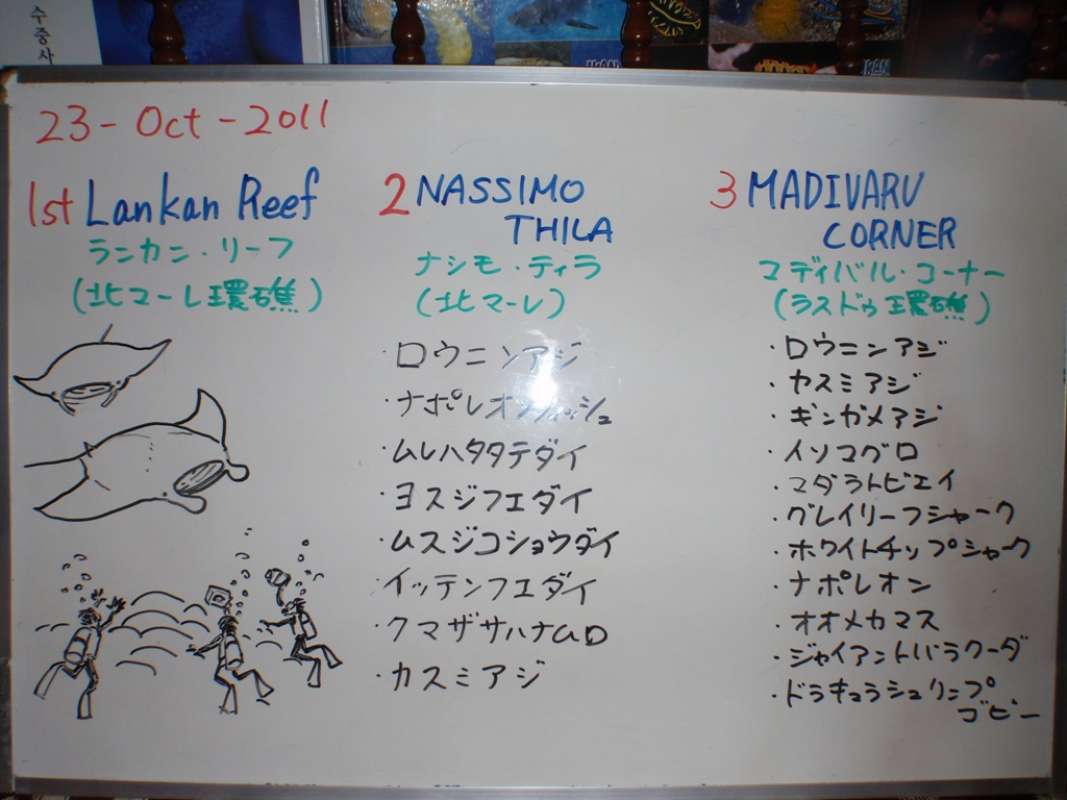 수중사
23-Oct-2011
1st Lankan Reef
ランカン・リーフ
(北マーレ環礁)
2 NASSIMO
THILA
ナシモ・ティラ
(北マーレ)
・ロウニンアジ
・ナポレオンフィッシュ
・ムレハタタテダイ
・ヨスジフエダイ
・ムスジコショウダイ
・イッテンフエダイ
・クマザサハナムロ
・カスミアジ
3 MADIVARU
CORNER
マディバル・コーナー
(ラスドゥ環礁)
・ロウニンアジ
・カスミアジ
・ギンガメアジ
・イソマグロ
・マダラトビエイ
・グレイリーフシャーク
・ホワイトチップシャーク
・ナポレオン
・オオメカマス
・ジャイアントバラクーダ
・ドラキュラシュリンプ
ゴビー